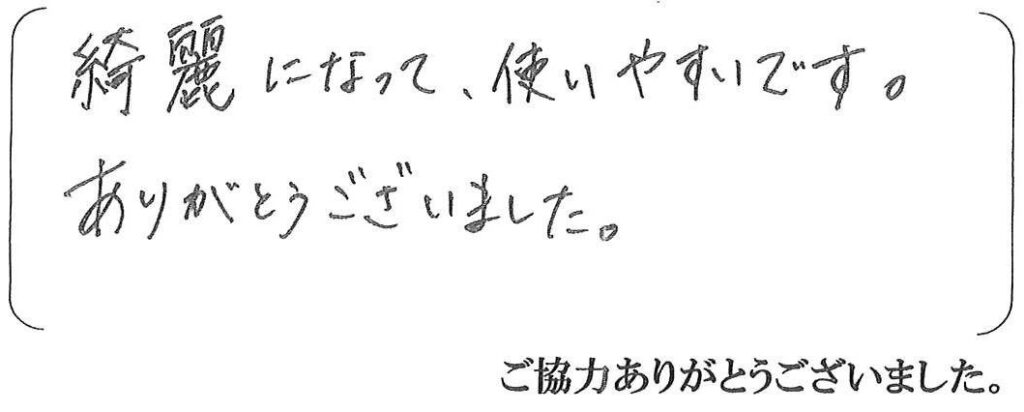 綺麗になって、使いやすいです。
ありがとうございました。
ご協力ありがとうございました。